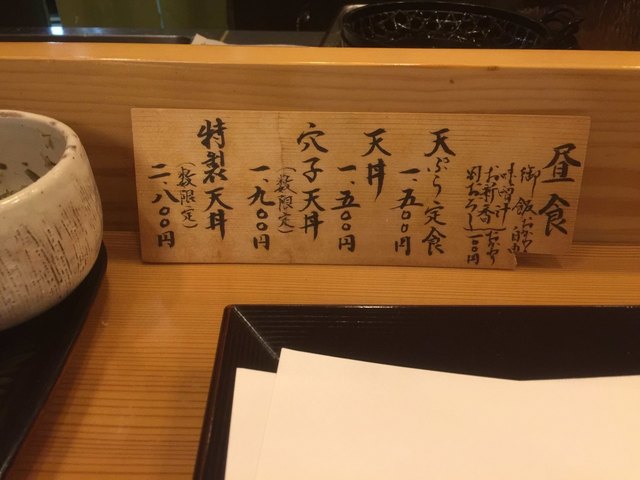 昼食
御飯おかわり自由
味噌汁
お新香 おかわり
一〇〇円
天ぷら定食
一、五〇〇円
天丼
一、五〇〇円
穴子天丼
(数限定)
一、九〇〇円
特製天丼
(数限定)
二、八〇〇円